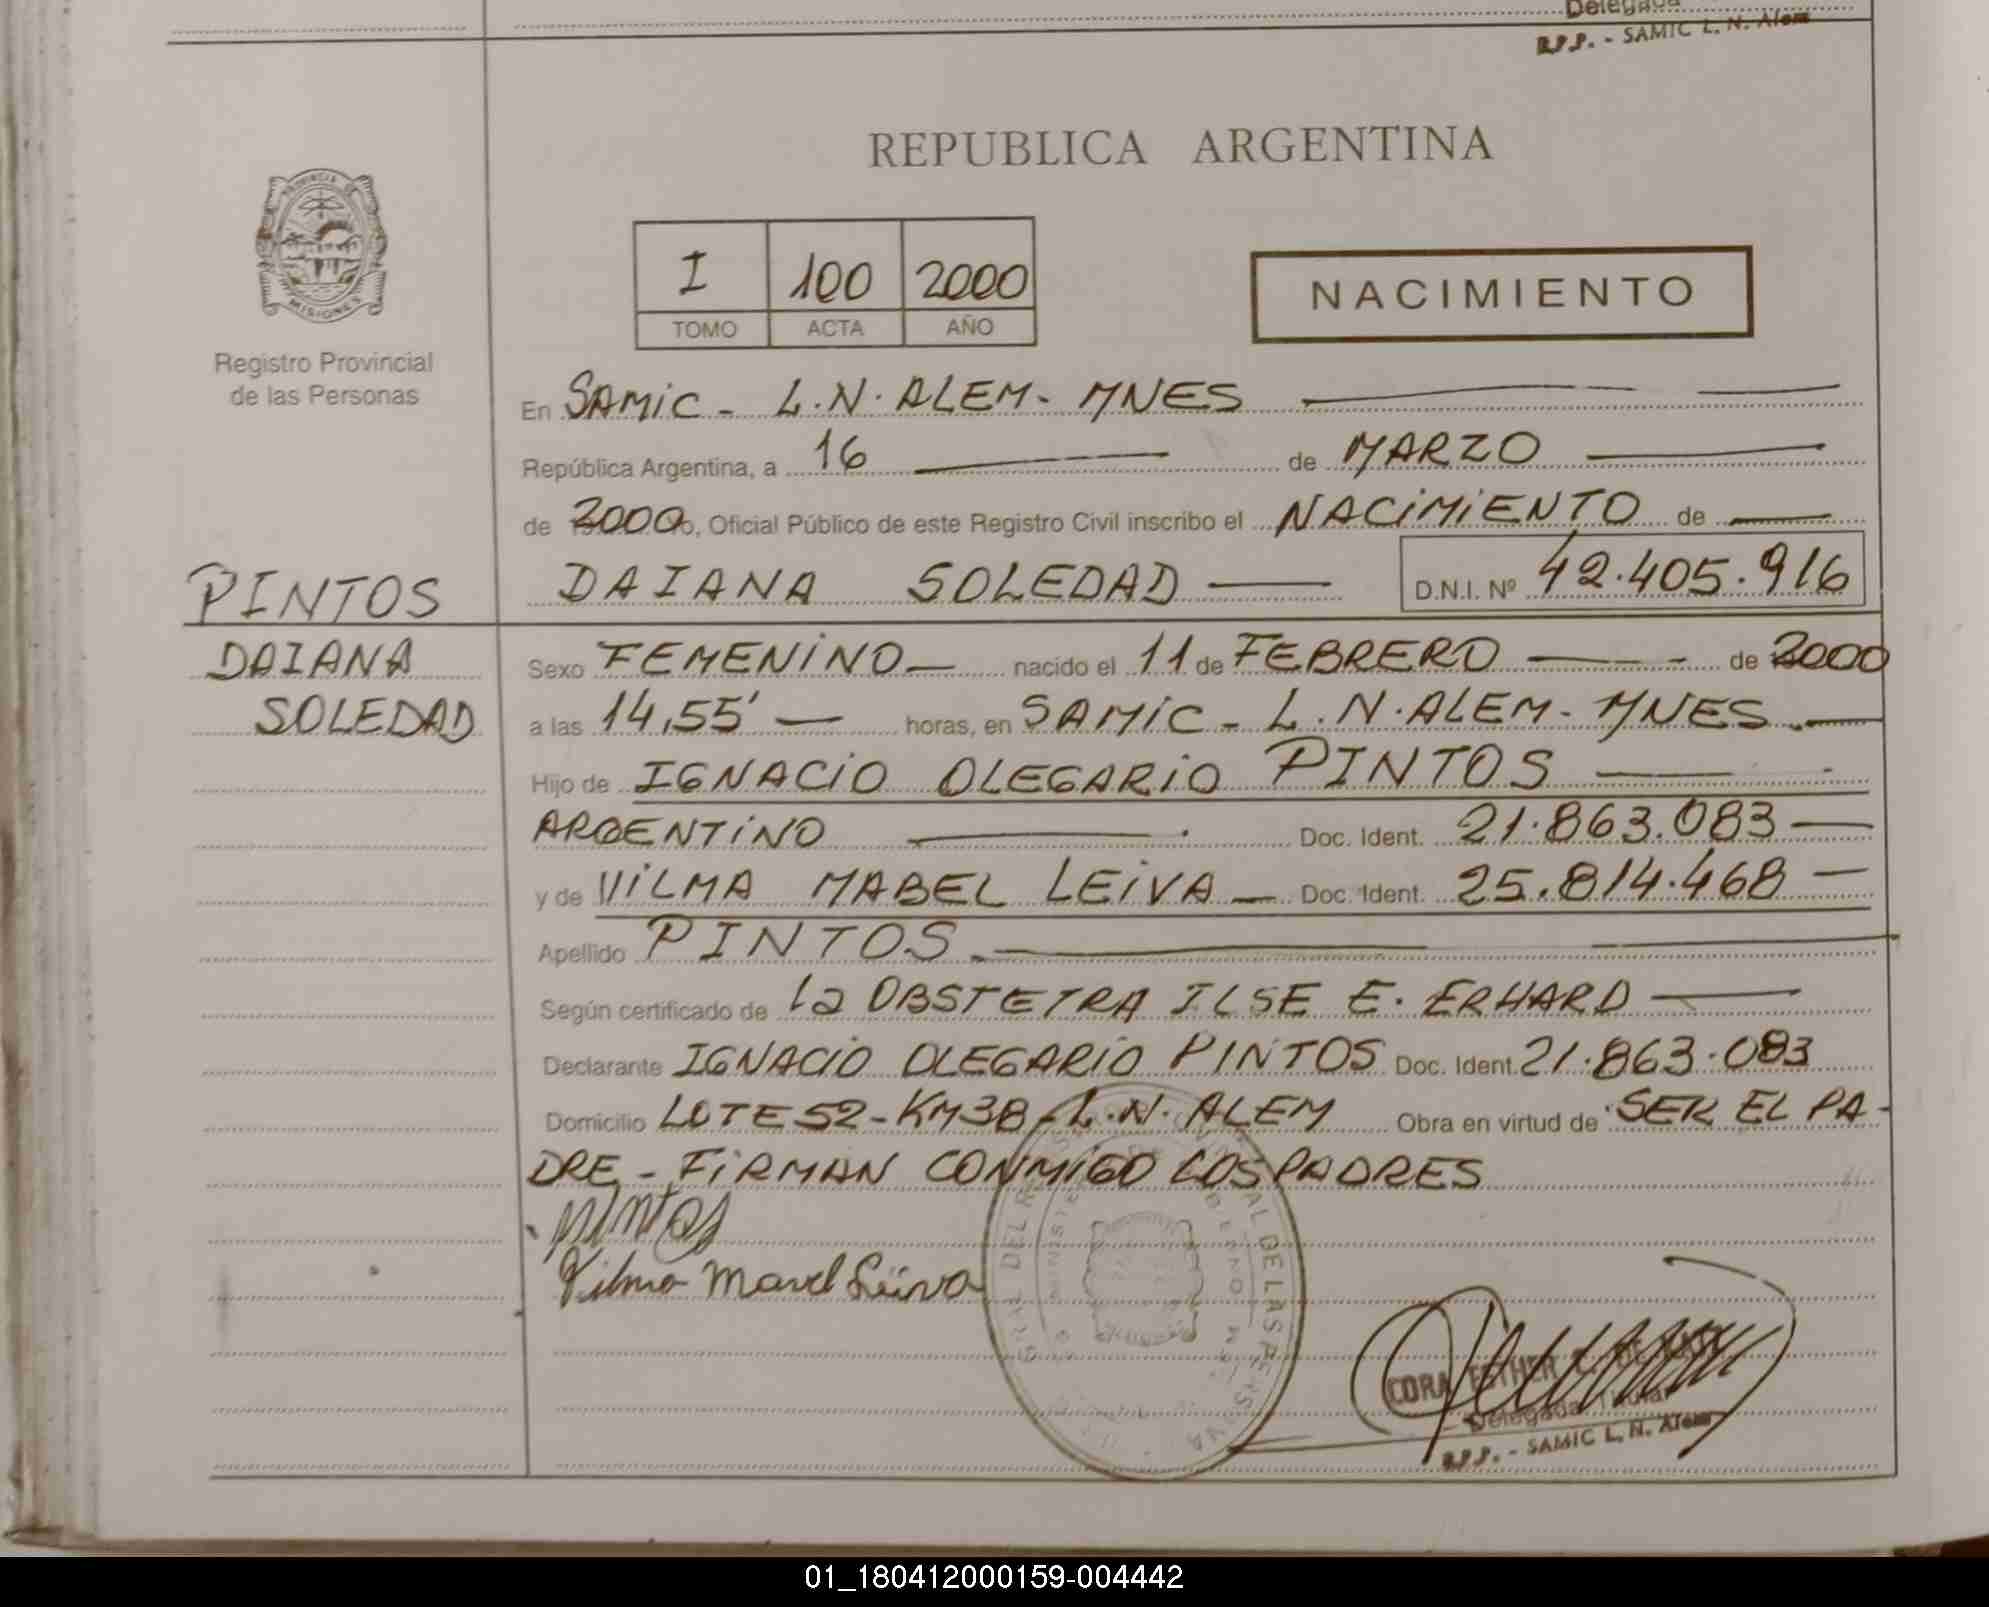 Delegada
R.P.P. - SAMIC L. N. Alem
REPUBLICA ARGENTINA
PROVINCIA DE
MISIONES
Registro Provincial
de las Personas
I 100 2000
TOMO ACTA AÑO
NACIMIENTO
En SAMIC - L.N. ALEM - MNES
República Argentina, a 16 de MARZO
de 2000, Oficial Público de este Registro Civil inscribo el NACIMIENTO de
PINTOS DAIANA SOLEDAD D.N.I. Nº 42.405.916
DAIANA Sexo FEMENINO nacido el 11 de FEBRERO de 2000
SOLEDAD a las 14,55' horas, en SAMIC - L.N. ALEM - MNES.
Hijo de IGNACIO OLEGARIO PINTOS
ARGENTINO Doc. Ident. 21.863.083
y de VILMA MABEL LEIVA Doc. Ident. 25.814.468
Apellido PINTOS
Según certificado de la OBSTETRA ILSE E. ERHARD
Declarante IGNACIO OLEGARIO PINTOS Doc. Ident. 21.863.083
Domicilio LOTE 52 - KM 38 - L.N. ALEM Obra en virtud de SER EL PA-
DRE - FIRMAN CONMIGO LOS PADRES
Pintos
Vilma Mavel Leiva
CORA ESTHER
Delegada Titular
R.P.P. - SAMIC L. N. Alem
01_180412000159-004442